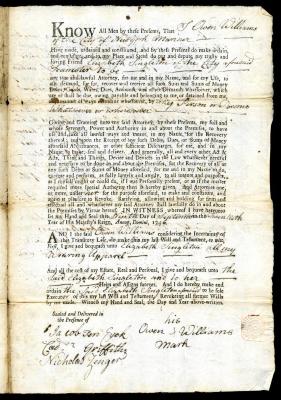 KNOW All Men by these Presents, That I Owen Williams
of the City of New York Mariner
Have made, ordained and constituted, and by these Presents do make, ordain
and constitute, and in my Place and Stead do put and depute my trusty and
loving Friend Elizabeth Singleton of the City aforesaid
to be
my true and lawful Attorney, for me and in my Name, and for my Use, to
ask, demand, for me to recover and receive all such Sum and Sums of Money
Debts, Goods, Wares, Dues, Accounts, and other Demands whatsoever, which
are or shall be due, owing, payable and belonging to me, or detained from me
any manner of Ways or Means whatsoever, by any Person or Persons
whatsoever
Giving and Granting unto my said Attorney, by these Presents, my full and
whole Strength, Power and Authority in and about the Premises, to have
and take all lawful ways and means, in my Name, for the Recovery
thereof; and upon the Receipt of any such Debts, Dues, or Sums of Money
aforesaid, Acquittances, or other sufficient Discharges, for me, and in my
Name, to make, seal and deliver. And generally, all and every other Act &
Acts, Thing and Things, Device and Devices in the Law whatsoever needful
and necessary to be done in and about the Premises, for the Recovery of all or
any such Debts or Sums of Money aforesaid, for me and in my Name to do,
execute and perform, as fully, largely and amply, to all intents and purposes,
as I myself might or could do, if I was Personally present, or as if the matter
required more special Authority than is herein given. And Attornies one,
or more, under her for the purpose aforesaid, to make and constitute, and
again at pleasure to Revoke. Ratifying, allowing and holding for firm and
effectual all and whatsoever my said Attorney shall lawfully do in and about
the Premises by Virtue hereof. IN WITNESS whereof I have hereunto
set my Hand and Seal this Day of in the
Year of His Majesty's Reign, Annoq; Domini, 17
AND I the said Owen Williams considering the Uncertainty of
this Transitory Life, do make this my last Will and Testament, to wit,
I give and bequeath unto Elizabeth Singleton all my
Wearing Apparel
And all the rest of my Estate, Real and Personal, I give and bequeath unto the
said Elizabeth Singleton and to her
Heirs and Assigns forever. And I do hereby make and
ordain the said Elizabeth Singleton to be sole
Executor of this my last Will and Testament; Revoking all former Wills
by me made. Witness my Hand and Seal, the Day and Year above-written.
Sealed and Delivered
in the Presence of
Jacob Ten Eyck
Griffiths
Nicholas
his
Owen Williams
Mark